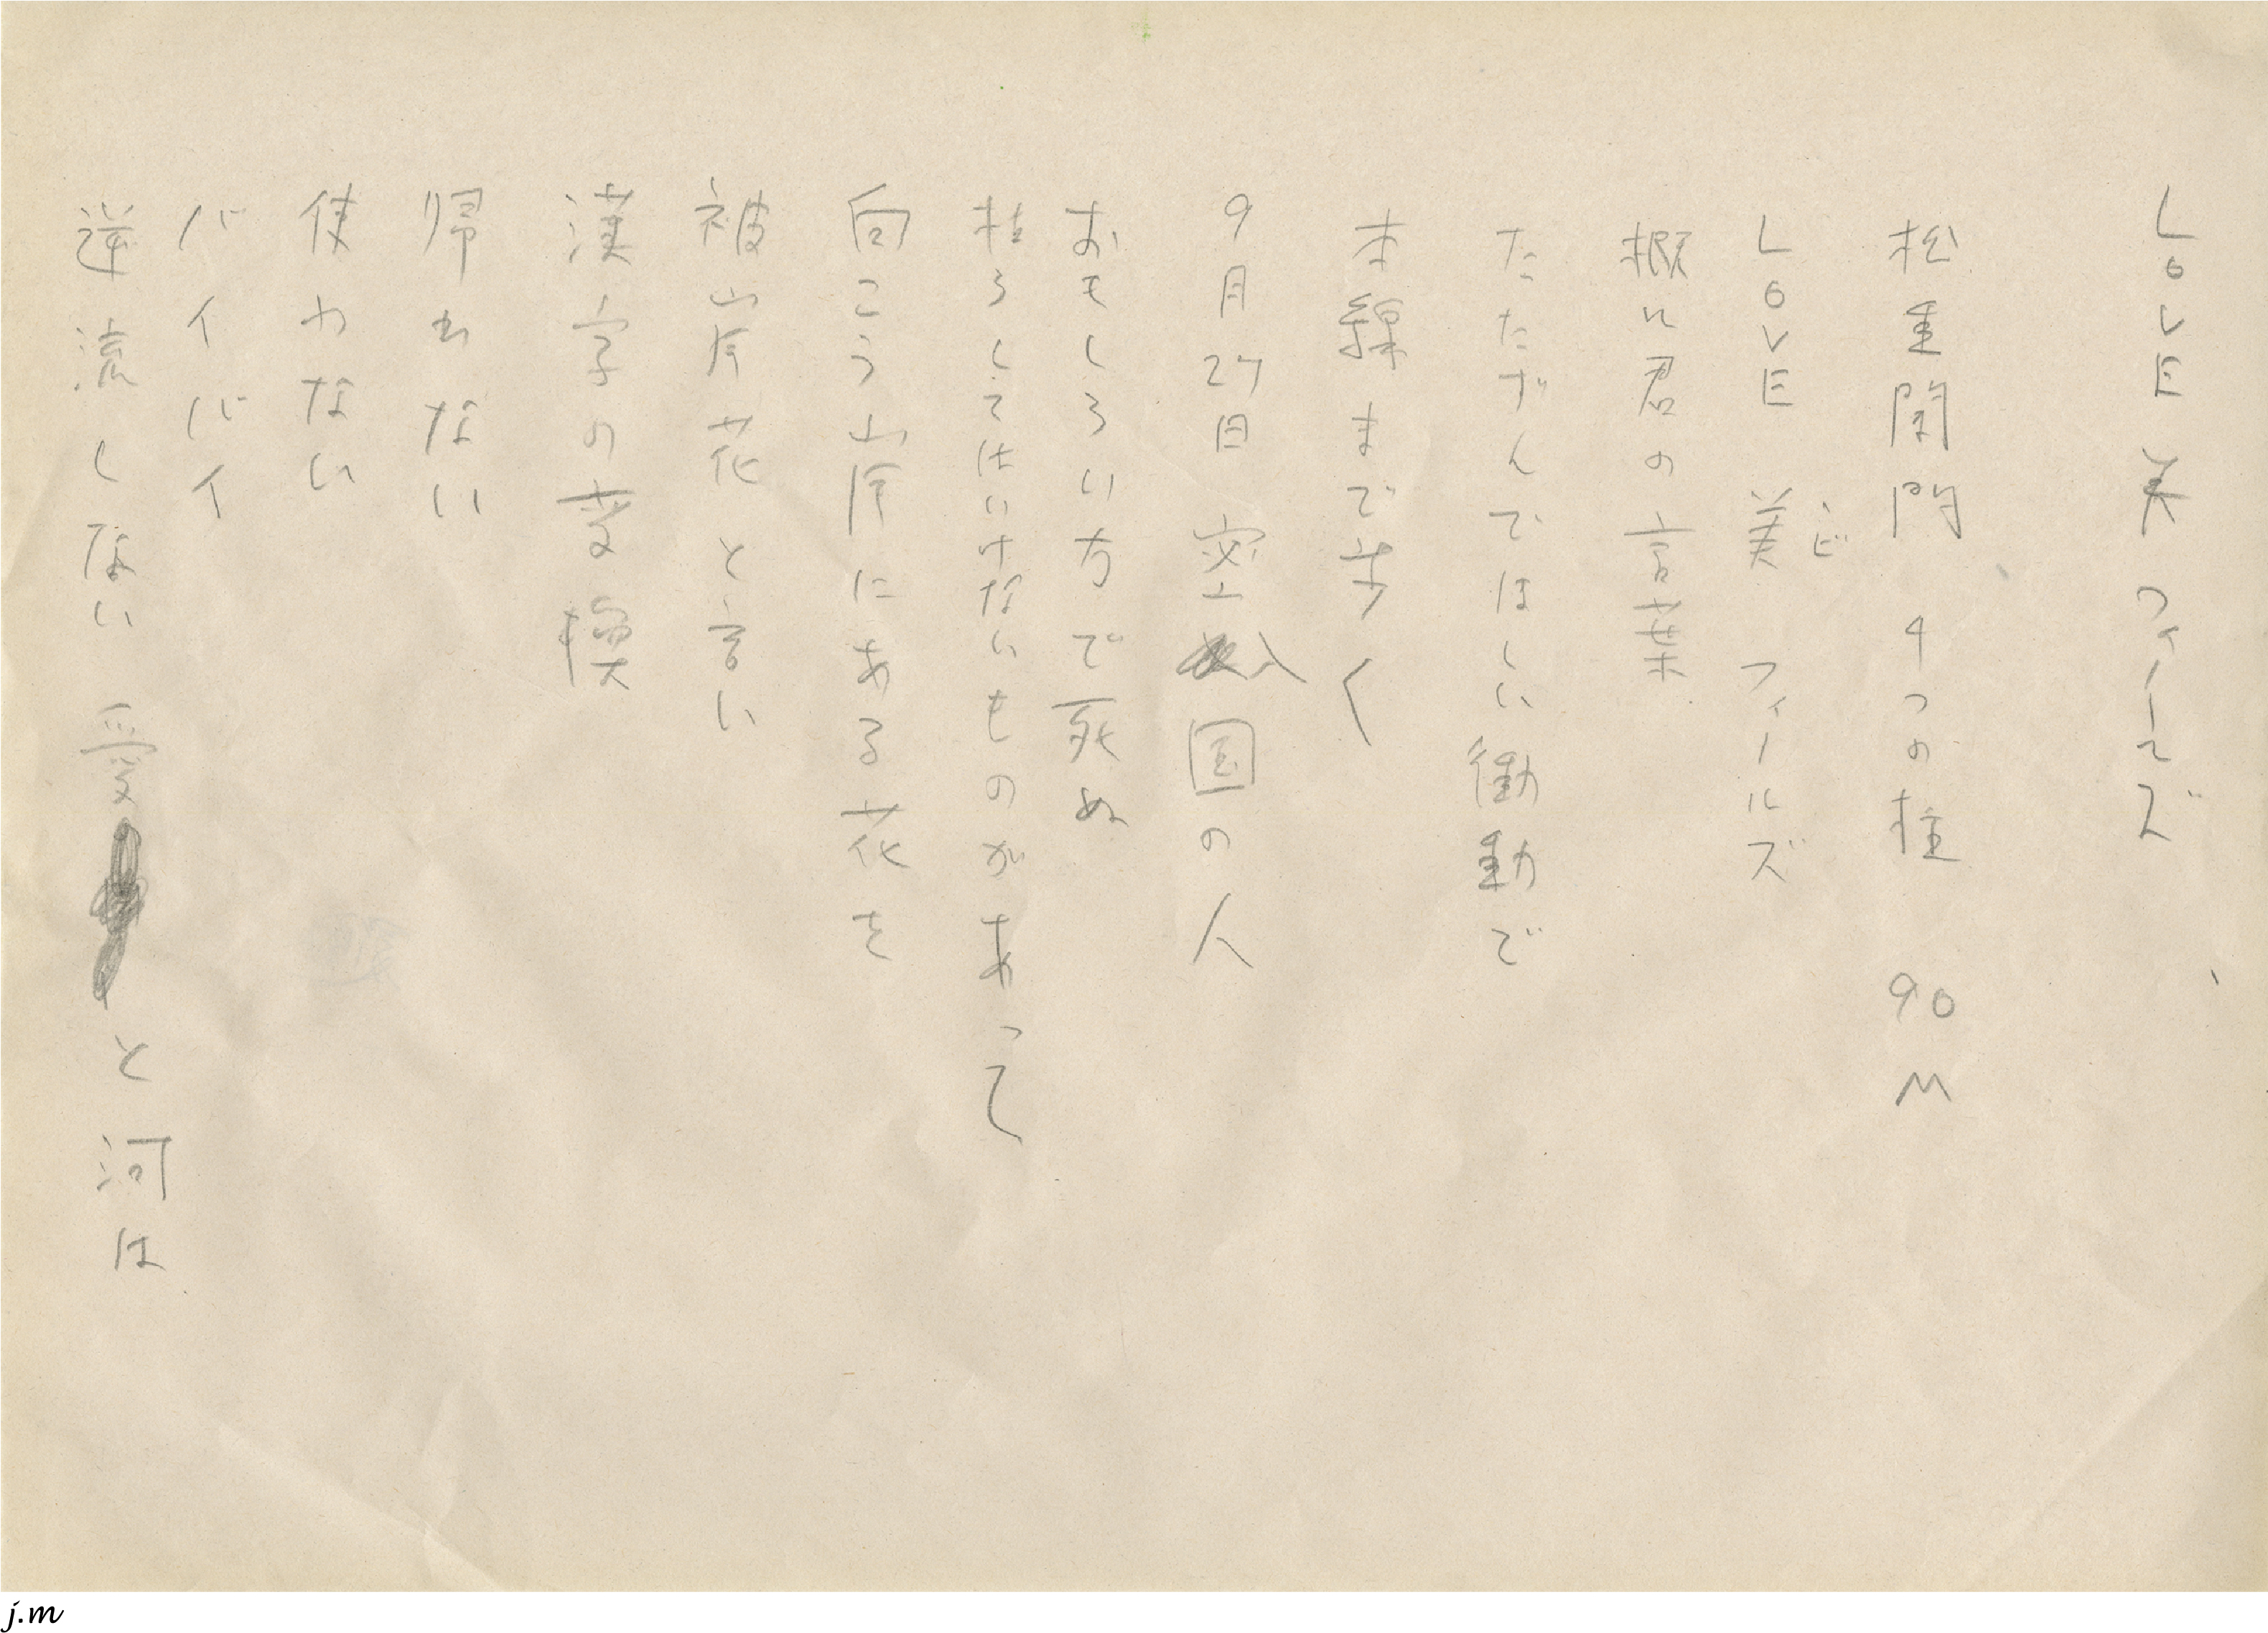 LOVE 美 フィールズ
松重閘門 4つの柱 90M
LOVE 美 フィールズ
ビ
君の言葉
たたずんでほしい衝動で
本線まで歩く
9月27日 密入国の人
おもしろい方で死ぬ
枯らしてはいけないものがあって
向こう岸にある花を
被岸花と言い
漢字の変換
帰れない
使わない
バイバイ
逆流しない 愛と河は
j.m